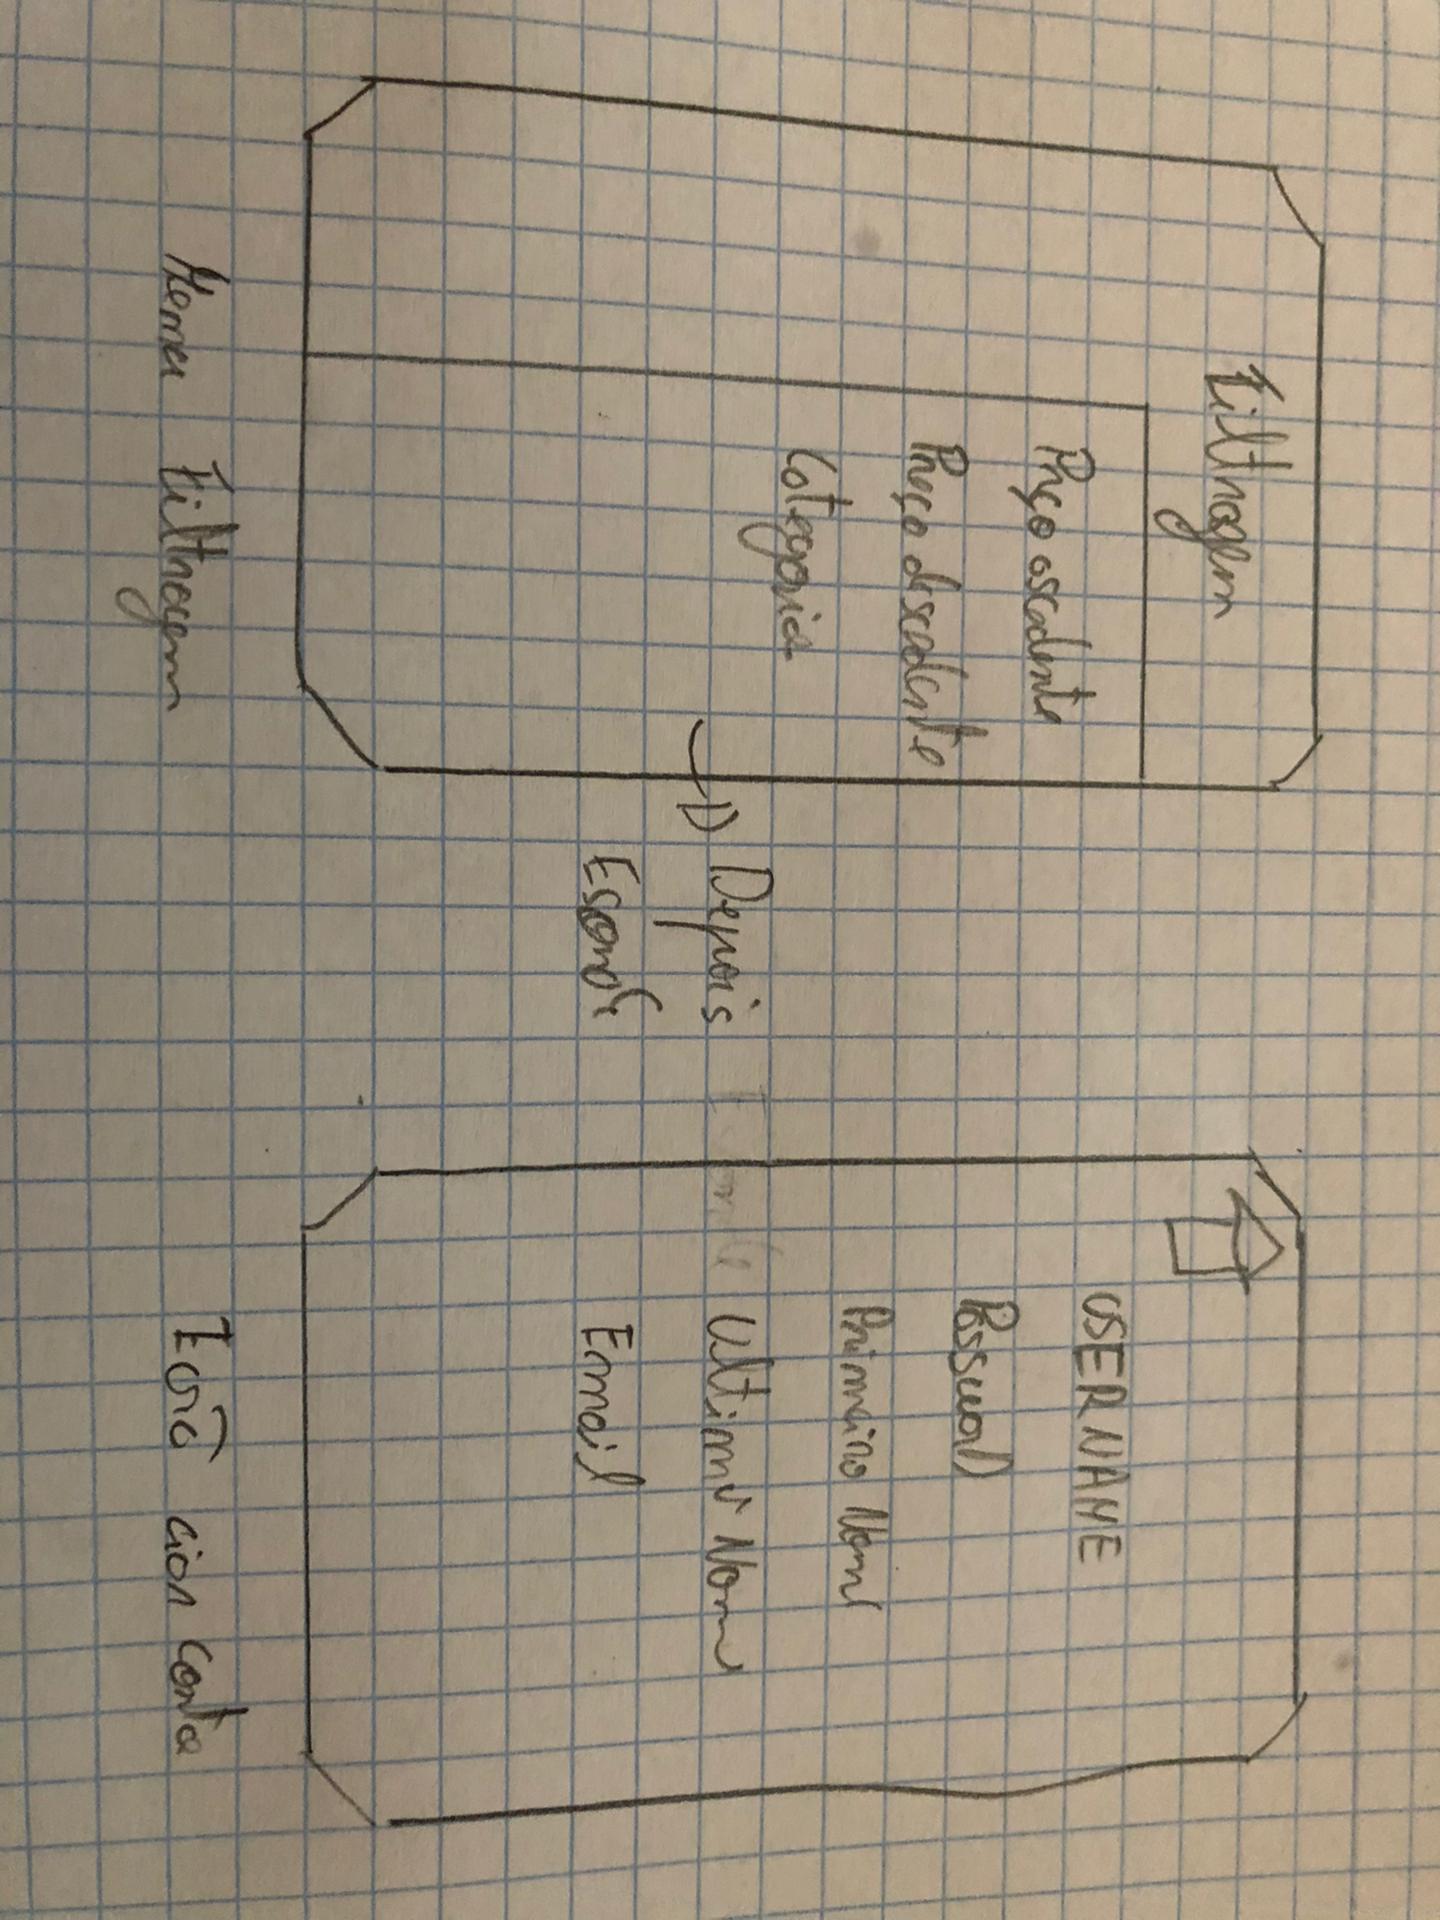 Filtragem
Preço ascedente
Preço descedente
Categoria
Depois
Menu Filtragem
USERNAME
Password
Primeiro Nome
Ultimo Nome
Email
Ecrã criar conta